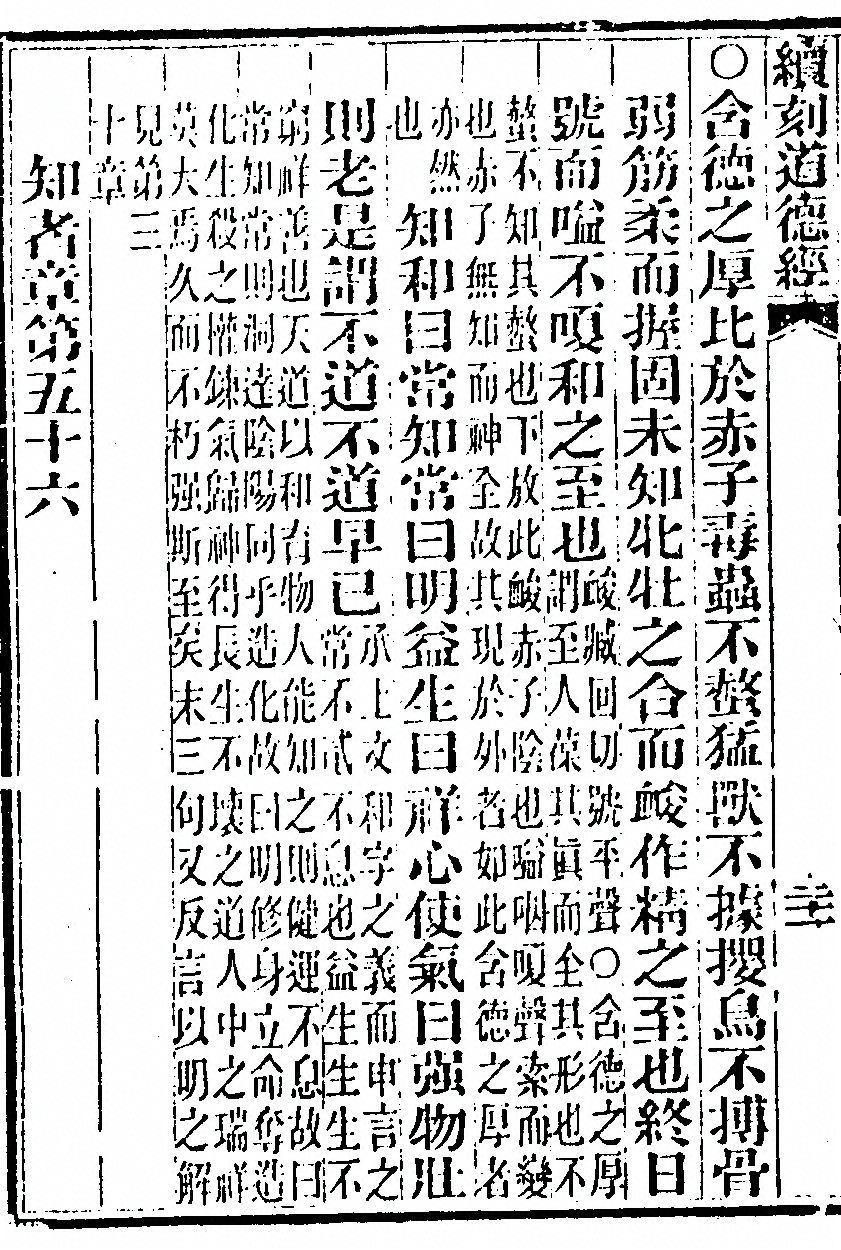 續刻道德經
○含德之厚比於赤子毒蟲不螫猛獸不據攫鳥不搏骨
弱筋柔而握固未知牝牡之合而䘒作精之至也終日
號而嗌不嗄和之至也䘒臧回切號平聲○含德之厚
謂至人葆其眞而全其形也不
螫不知其螫也下放此䘒赤子陰也嗌咽嗄聲索而變
也赤子無知而神全故其現於外者如此含德之厚者
亦然
也
知和曰常知常曰明益生曰祥心使氣曰强物壯
則老是謂不道不道早已承上文和字之義而申言之
常不貳不息也益生生生不
窮祥善也天道以和育物人能知之則健運不息故曰
常知常則洞達陰陽同乎造化故曰明修身立命奪造
化生殺之權鍊氣歸神得長生不壞之道人中之瑞祥
莫大焉久而不朽强斯至矣末三句又反言以明之解
見第三
十章
知者章第五十六